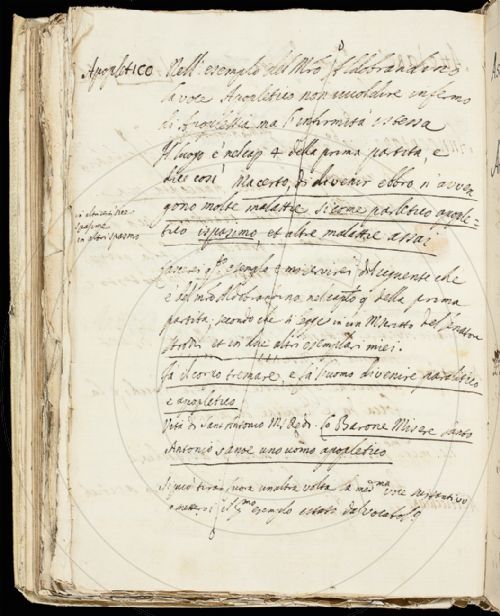 Apopletico Nell'esempio del Mro Aldobrandino
la voce Apopletico non vuol dire infermo
di apoplessia ma l'infermità istessa
Il luogo è nel cap 4 della prima partita, e
dice così Ma certo, di divenir ebbro n avven
gono molte malattie siccome parletico apople=
tico ispasimo, et altre malattie assai
in altri
spasime
in altri spasmo
q.to esempio e mi servirei del seguente che
è del mro Aldobrandino nel cap.to 9 della prima
partita, secondo che si legge in un Mscritto del senatore
Strozzi et in due altri esemplari miei.
Fa il corpo tremare, e fa l'uomo divenire paraletico
e anopletico
Viti di Sant'Antonio Ms Redi. Lo Barone Missere santo
Antonio sanoe uno uomo apopletico
un'altra volta la med.ma voce
il esempio citato dal vocabol